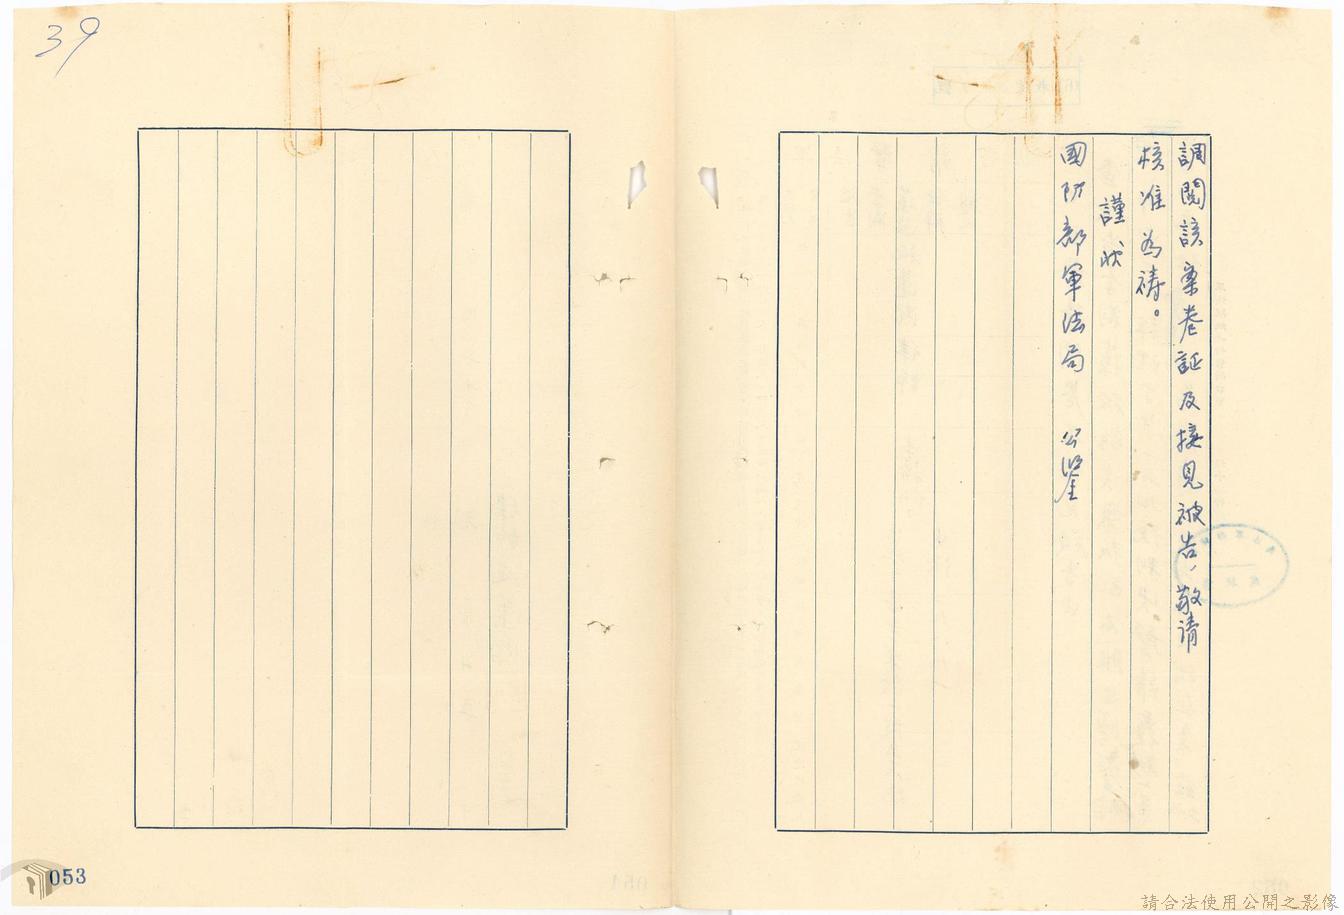 調閱該案卷証及接見被告，敬請
核准為禱。
謹狀
國防部軍法局 公鑒
39
053
請合法使用公開之影像